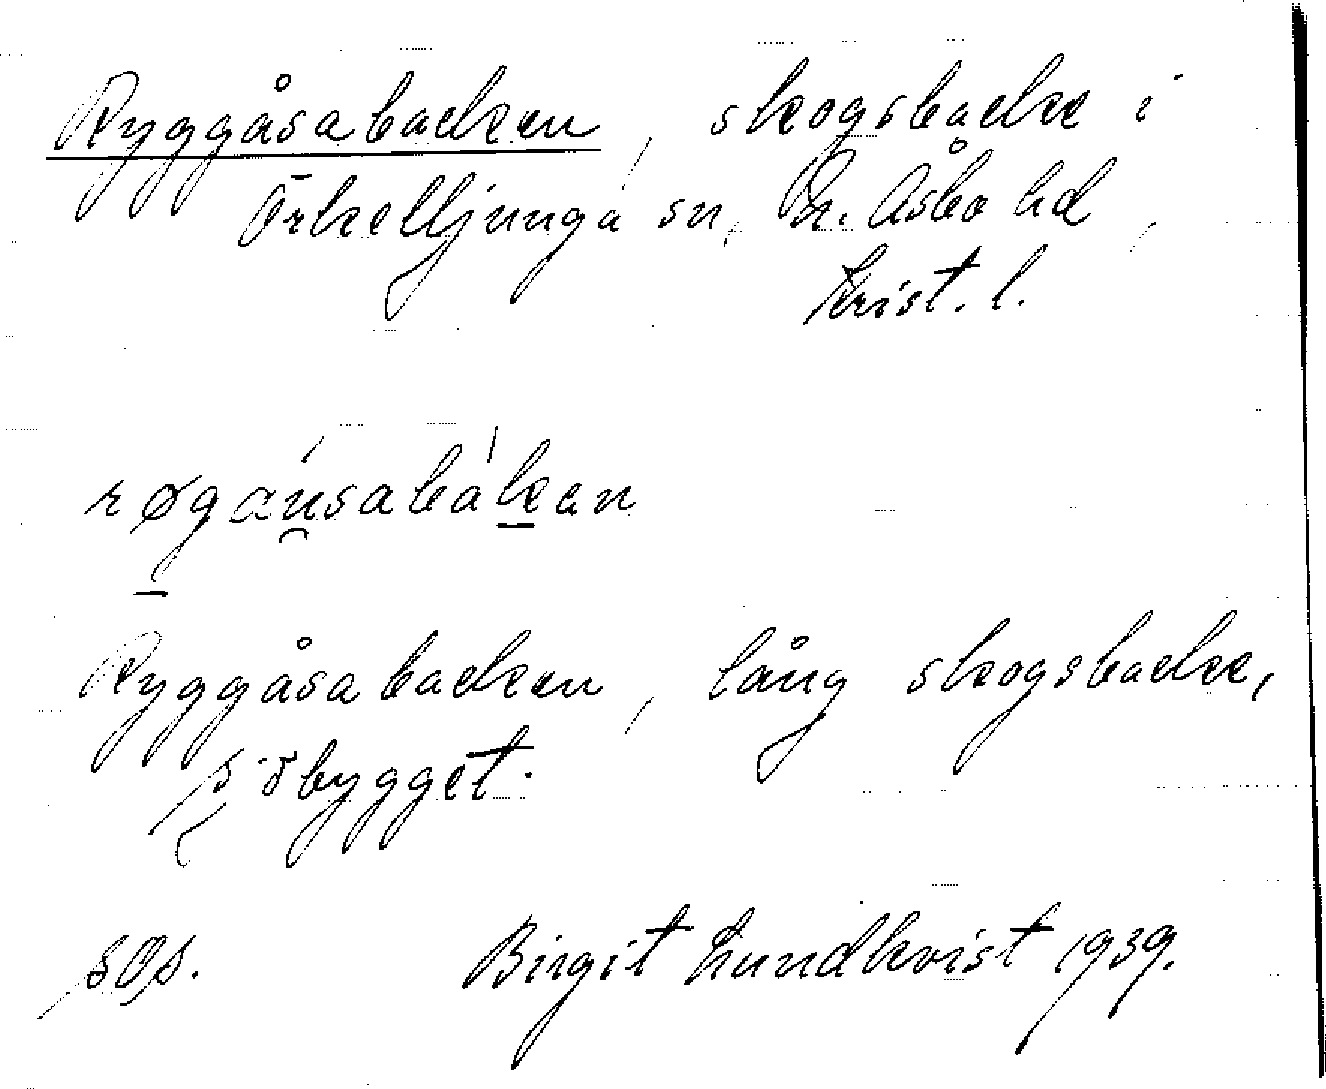 Ryggåsabacken, skogsbacke i
Örkelljunga sn, N. Åsbo hd,
Krist. l.
røgánsabákan
Ryggåsabacken, lång skogsbacke,
Söbygget.
SOS. Birgit Lundkvist 1939.